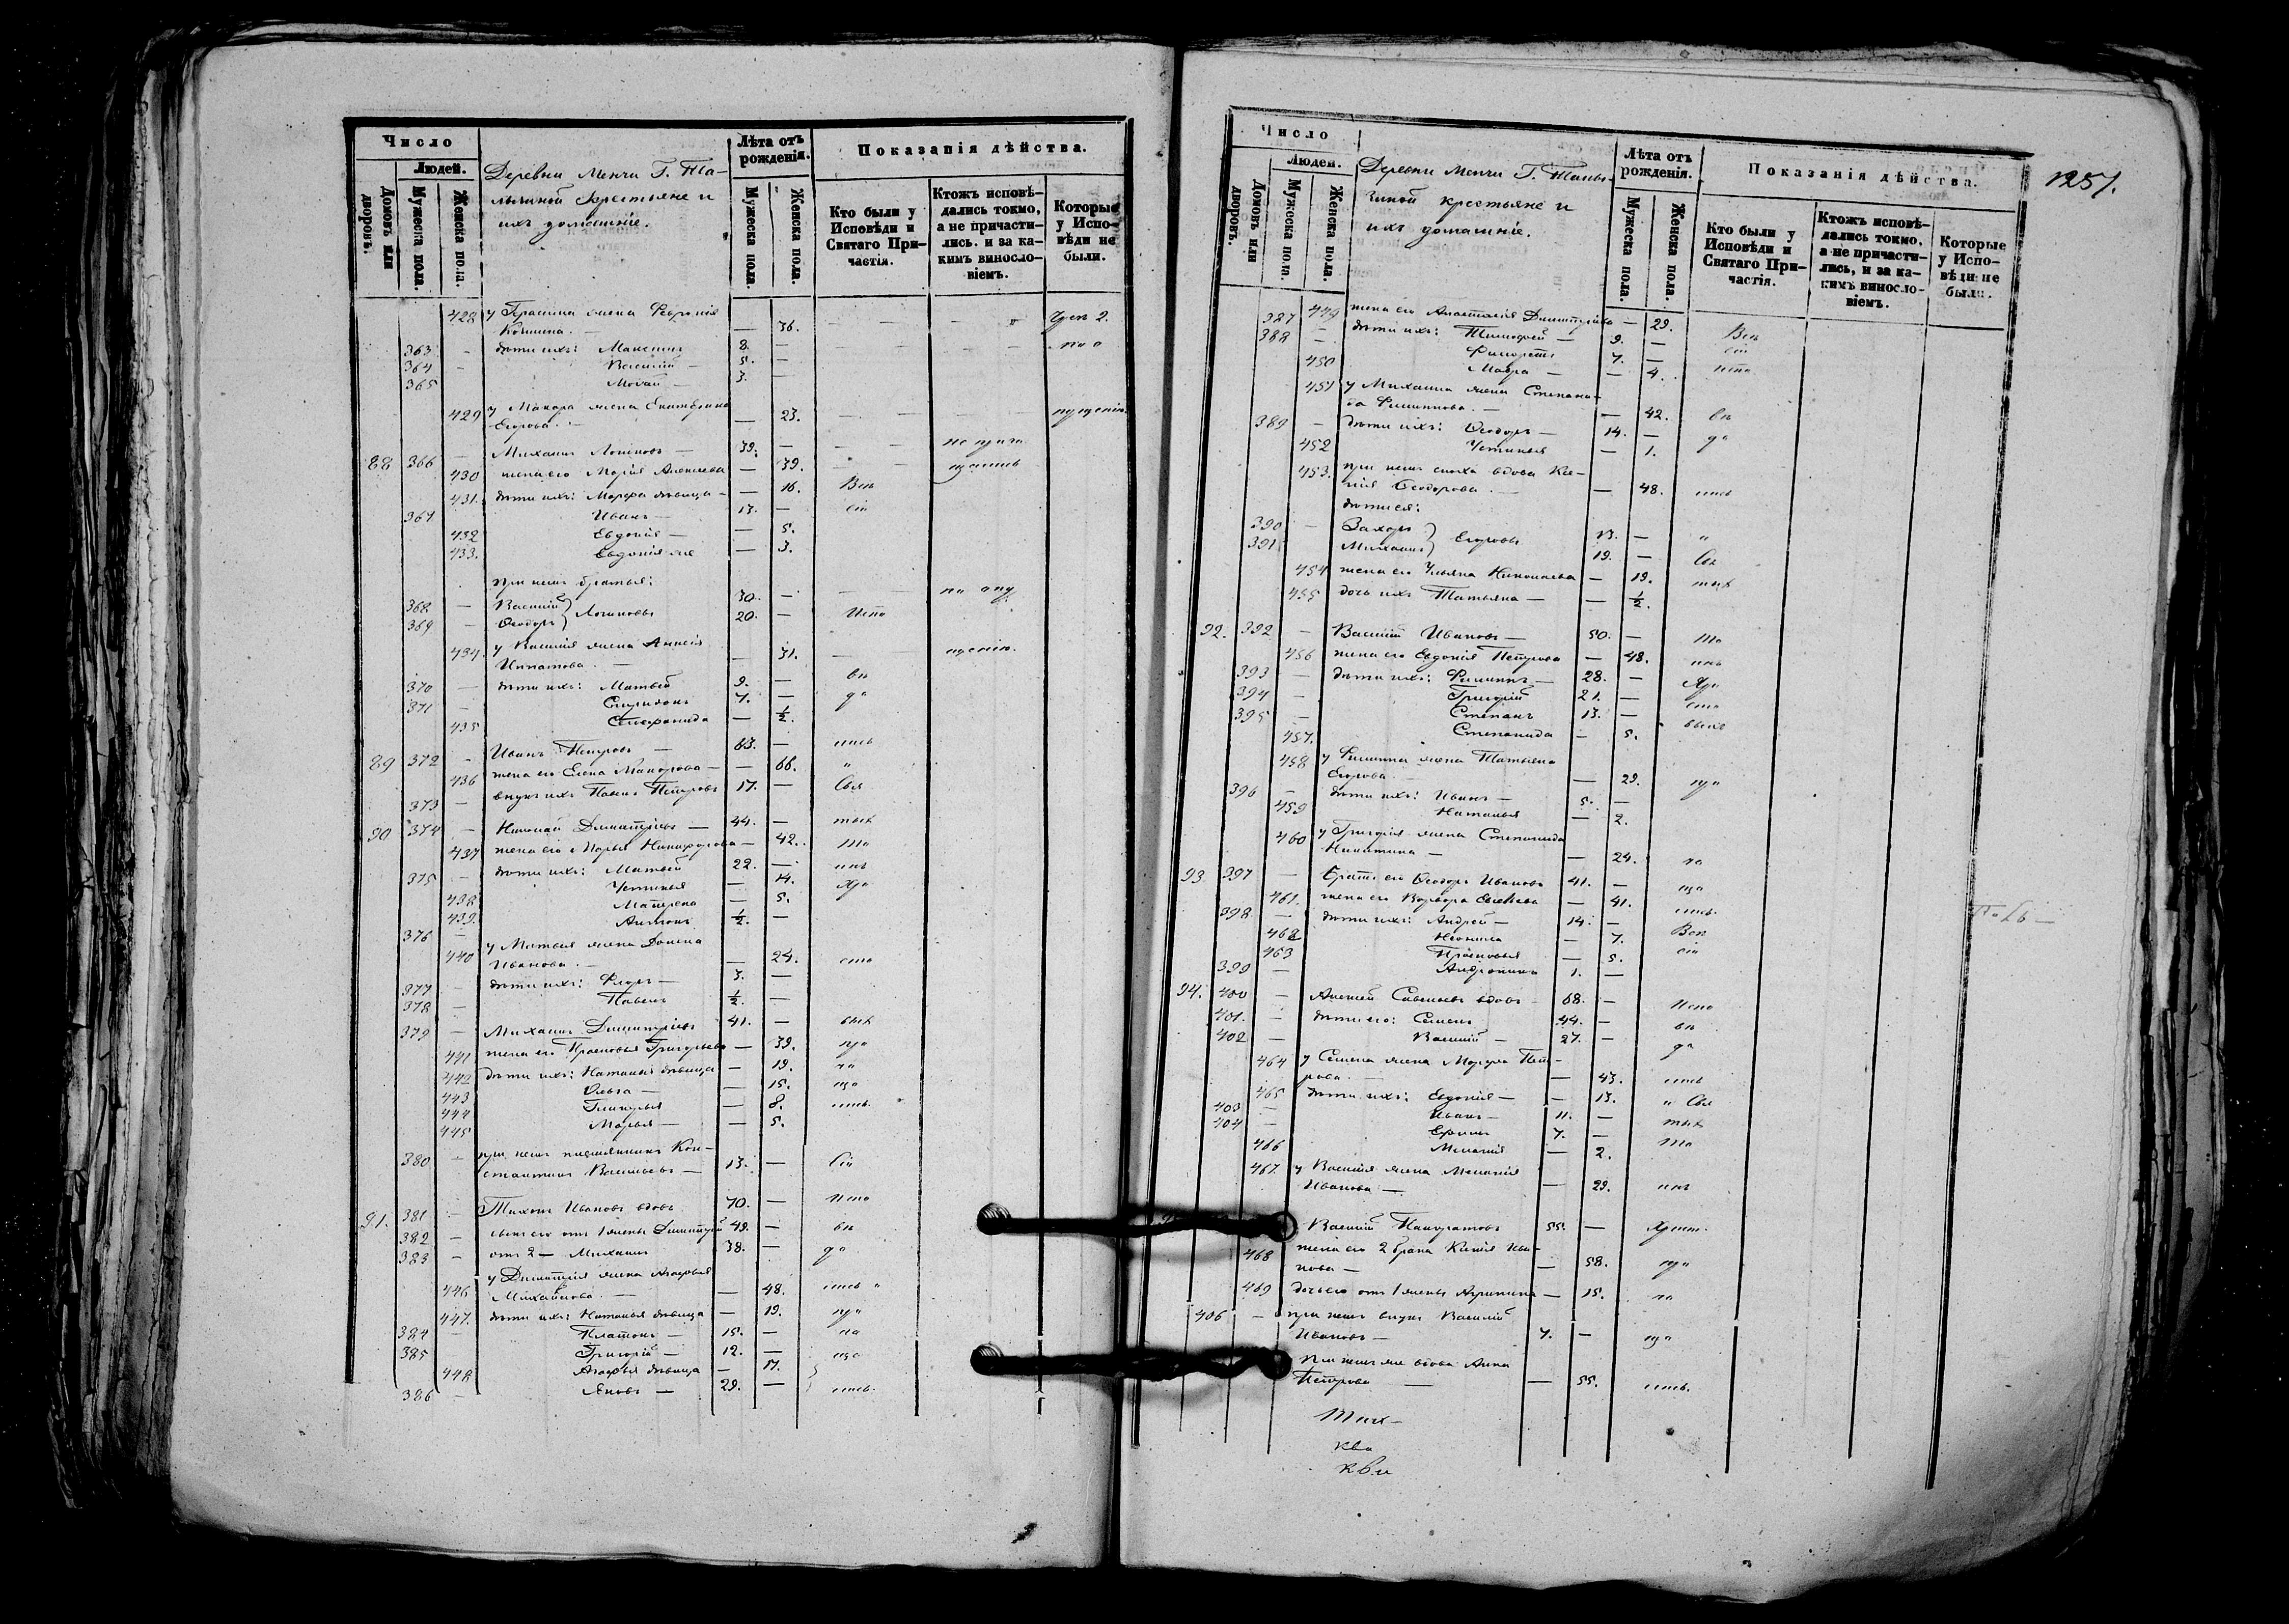 Число
Людей.
Домовъ или дворовъ.
Мужеска пола.
Женска пола.
Деревни Мокчи Г. Та-
лызиной крестьяне и
ихъ домашніе.
Лѣта отъ рожденія.
Мужеска пола.
Женска пола.
Показанія дѣйства.
Кто были у Исповѣди и Святаго При-
частія.
Ктожъ исповѣ-
дались токмо,
а не причасти-
лись. и за ка-
кимъ винсло-
віемъ.
Которые
у Испо-
вѣди не
были.
428 у Герасима жена Феоронія
— 36.
363 — дѣти ихъ: Максимъ 8. —
364 — Василій — 5. —
365 3. —
429 у Макара жена Екатерина
Егорова. — — 23.
88 366 — Михаилъ Логиновъ — 39. —
430 жена его Марія Алексѣева — 39.
431. дѣти ихъ: Марфа дѣвица — — 16.
367. Иванъ — 13. —
432 Евдокія — — 5.
433. Евдокія же — 3.
при немъ братья:
368 — Василій 30. —
369 — Ѳеодоръ Логиновы 20. — Испо
434. у Василія жена
— 31.
370 — дѣти ихъ: Матвѣй 9. — вѣ
371 — Спиридонъ 7. — да
435 — ½.
89 372 — Иванъ Петровъ — 63. —
436 жена его Елена Макарова — — 66. "
373 — внукъ ихъ Павелъ Петровъ 17. — Свя
90 374 — Николай Димитріевъ — 44. — тых
437 жена его Марья Никифорова — 42. Та
375 — дѣти ихъ: Матвѣй 22. — инъ
438 Устинья — 14. Хри
439. Матрена — 5.
376 — Антонъ ½. —
440 у Матвѣя жена Домна
Иванова. — — 24. сто
377 — дѣти ихъ: 3. —
378 — Павелъ ½. —
379 — Михаилъ Димитріевъ 41. — вых
441 жена его Прасковья Григорьева — 39. при
442 дѣти ихъ: Наталья дѣвица — 19. ча
443 Ольга — — 15. ща
444 Гликерья — 8. лись.
445 Марья — — 5.
380 — при немъ племянникъ Кон-
стантинъ Васильевъ — 13. — Сіи
91. 381 — Тихонъ Ивановъ вдовъ 70. — Испо
382 — сынъ его отъ 1 жены Димитрій 49. — вѣ
383 — отъ 2 — Михаилъ 38. — да
у Димитрія жена Агафья
446 Михайлова. — — 48. лись "
447. дѣти ихъ: Наталья дѣвица — 19. при
384 — Платонъ — 15. — ча
385 Григорій — 12. — ща
448 Агафья дѣвица — 17.
386 — Яковъ — 29. — лись.
1251.
Число
Людей.
Домовъ или дворовъ.
Мужеска пола.
Женска пола.
Деревни Мокчи Г. Талы-
зиной крестьяне и
ихъ домашніе.
Лѣта отъ рожденія.
Мужеска пола.
Женска пола.
Показанія дѣйства.
Кто были у
Исповѣди и
Святаго При-
частія.
Ктожъ исповѣ-
дались токмо,
а не причасти-
лись, и за ка-
кимъ винсло-
віемъ.
Которые
у Испо-
вѣди не
были.
449 жена его Анастасія Димитріева — 29. Вси
387 дѣти ихъ: Тимофей — 9. — сіи
388 — 7. — испо
450 Мавра — — 4.
451 у Михаила жена Степани-
да Филиппова. — — 42. вѣ
389 — дѣти ихъ: Ѳеодоръ — 14. — да
452 Устинья — 1.
453. при немъ сноха вдова Ксе-
нія Ѳеодорова. — — 48. лись
дѣти ея:
390 — Захаръ 13. — "
391. Михаилъ Егоровы 19. — Свя
454 жена его Ульяна Николаева — 19. тых
455 дочь ихъ Татьяна — — ½.
92. 392 — Василій Ивановъ — 50. — Та
456 жена его Евдокія Петрова — 48. инъ
393 — дѣти ихъ: Филиппъ — 28. — Хри
394 — Григорій 21. — сто
395 — Степанъ 13. — выхъ
457. Степанида — 5.
458 у Филиппа жена Татьяна
Егорова. — — 29. при
396 — дѣти ихъ: Иванъ — 5. —
459 Наталья — 2.
460 у Григорія жена Степанида
Никитина — — 24. ча
93 397 — братъ его Ѳеодоръ Ивановъ 41. — ща
461. жена его Варвара Евсѣева — 41. лись.
398 — дѣти ихъ: Андрей — 14. — Вси
462 Неонила — 7. сіи
463 Прасковья — 5.
399 — 1. —
94. 400 — Алексѣй Савельевъ вдовъ 68. — Испо
401. — дѣти его: Семенъ 44. — вѣ
402 — Василій — 27. — да
464 у Семена жена Марфа Пет-
рова. — — 43. лись
465 дѣти ихъ: Евдокія — — 13. " Свя
403 — Иванъ — 11. — тых
404 — Ефимъ 7. — Та
466 Меланія — 2.
467. у Василія жена Меланія
Иванова — — 29. инъ
Василій Панкратовъ 55. — Христ.
468 жена его 2 брака Ксенія Ива-
нова — — 58. при
469 дочь его отъ 1 жены Агрипина — 15. ча
406 — при немъ внукъ Василій
Ивановъ — 7. — ща
при немъ же вдова Анна
Петрова — — 55. лись.